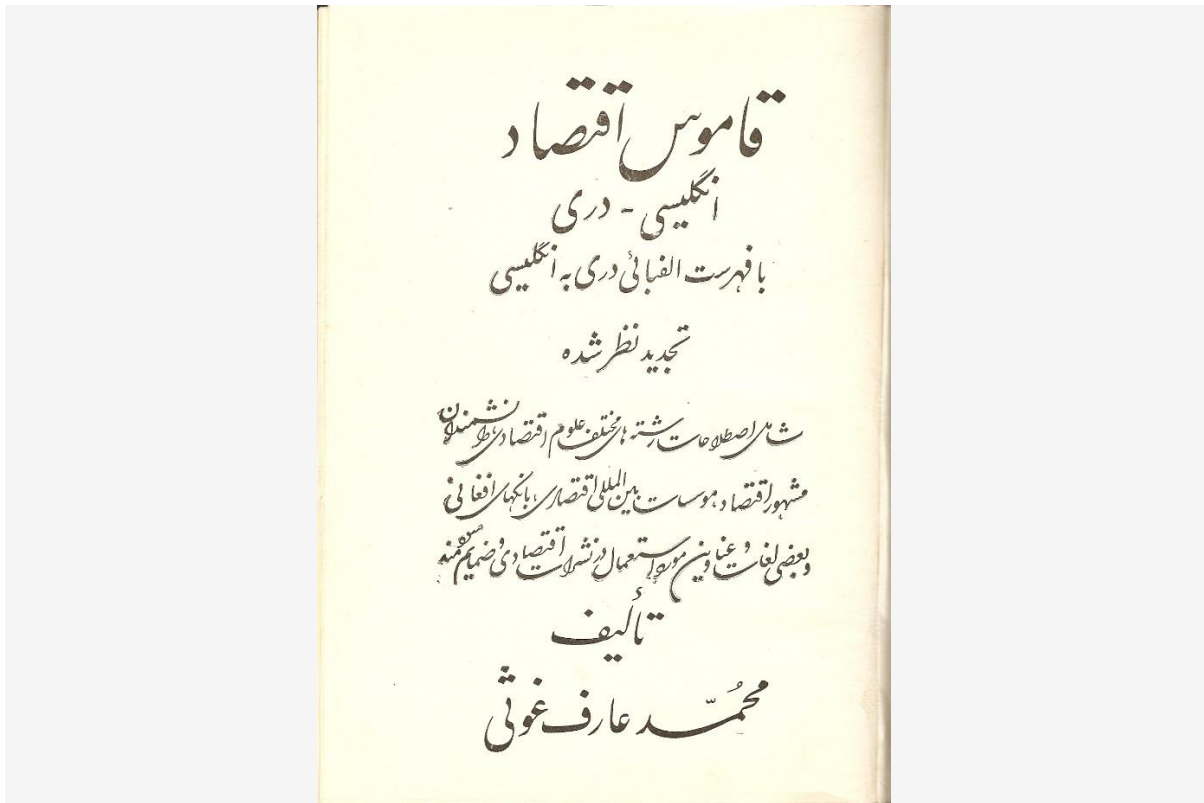 قاموس اقتصاد
انگلیسی - دری
با فهرست الفبائی دری به انگلیسی
تجدید نظر شده
شامل اصطلاحات رشته های مختلف علوم اقتصادی، دانشمندان
مشهور اقتصاد، موسسات بین المللی اقتصادی، بانکهای افغانی
و بعضی لغات و عناوین مورد استعمال در نشرات اقتصادی و ضمایم سودمند
تألیف
محمّد عارف غوثی